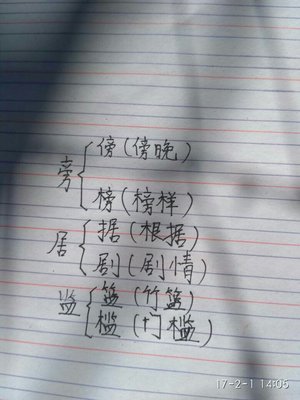 旁
傍(傍晚)
榜(榜样)
居
据(根据)
剧(剧情)
监
篮(竹篮)
槛(门槛)
17-2-1 14:05